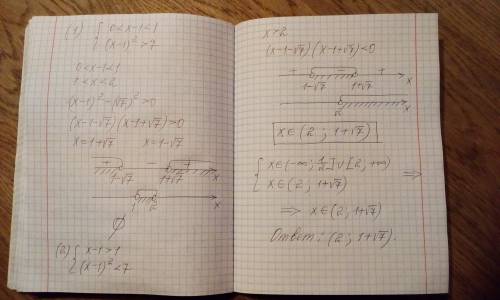 (1) { 0<x-1<1
(x-1)² > 7
0<x-1<1
1<x<2
(x-1)² - (√7)² > 0
(x-1-√7)(x-1+√7)>0
x=1+√7 x=1-√7
+ - +
1-√7 1+√7 x
1 2 x
∅
(2) { x-1>1
(x-1)² < 7
x>2
(x-1-√7)(x-1+√7)<0
+ - +
1-√7 1+√7 x
2 x
x∈(2; 1+√7)
{ x∈(-∞; 1/2]∪[2; +∞)
x∈(2; 1+√7) ⇒
⇒ x∈(2; 1+√7)
Ответ: (2; 1+√7).